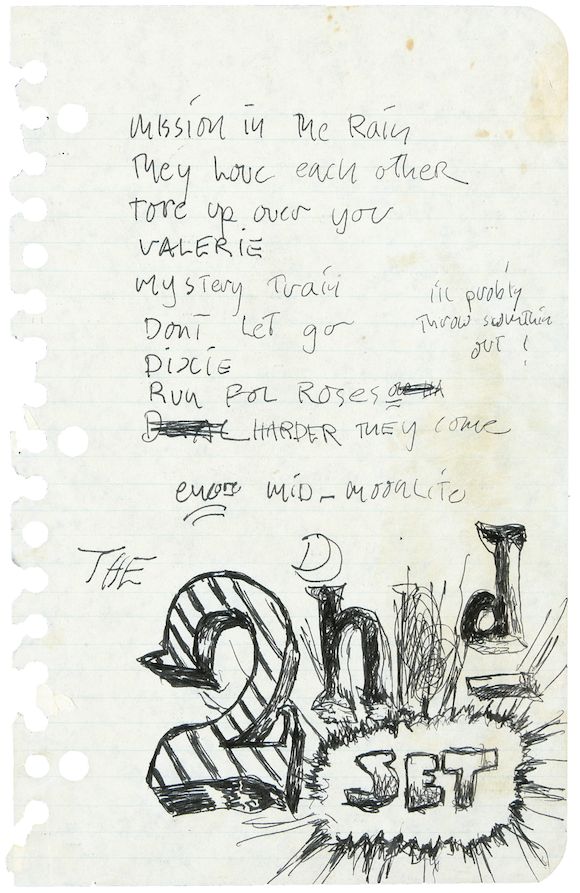 Mission in The Rain
They love each other
tore up over you
VALERIE
Mystery Train
Don't Let go
DIXIE
Run FOR Roses
HARDER THEY come
I'll probly
Throw somthin
out !
encore MID-MOONLITE
THE
2nd
SET